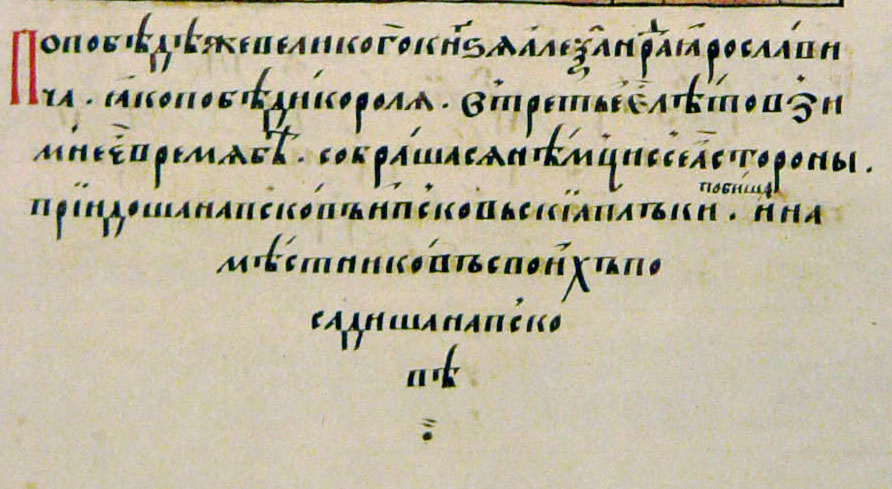 Попобѣдѣжевеликог҃окн҃ѕѧалеѯа́ндраꙗрославⸯи
ча. ꙗкопобѣди́королѧ. втретьееⷤлѣтовзи
мнеⷷвремѧбѣ. собра́шасѧнѣ́мциссеѧ҃стороны.
прїидошанапско́въ и҆пско́вьскїѧплъкипобиша. и҆на
мѣстниковъсвои́хъпо
сади́шанапско
вѣ